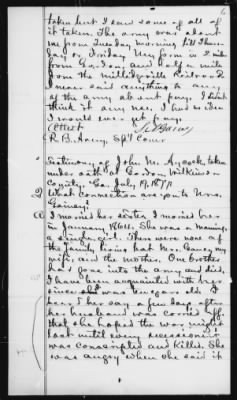 6
taken but I saw some of all of
it taken. The army was about
me from Tuesday morning till Thurs-
day or Friday. My farm is 2 miles
from Gordon, and half a mile
from the Milledgeville Railroad.
I never said anything to any
of the army about pay. I didn't
think it any use. I had no idea
I would ever get pay.
Attest
R. B. Avery, Sp'l Comr
Testimony of John M. Aycock, taken
under oath at Gordon, Wilkinson
County, Ga. July 19, 1877
Q What connection are you to Mrs.
Gainey?
A I married her sister. I married her
in January 1864. She was a
single girl. There were none of
the family living but Mrs. Gainey, my
wife, and the mother. One brother
had gone into the army and died.
I have been acquainted with her
since she was ten years old. I
heard her say a few days after
her husband was carried off,
that she hoped the war might
last until every secessionist
was conscripted and killed. She
was angry when she said it